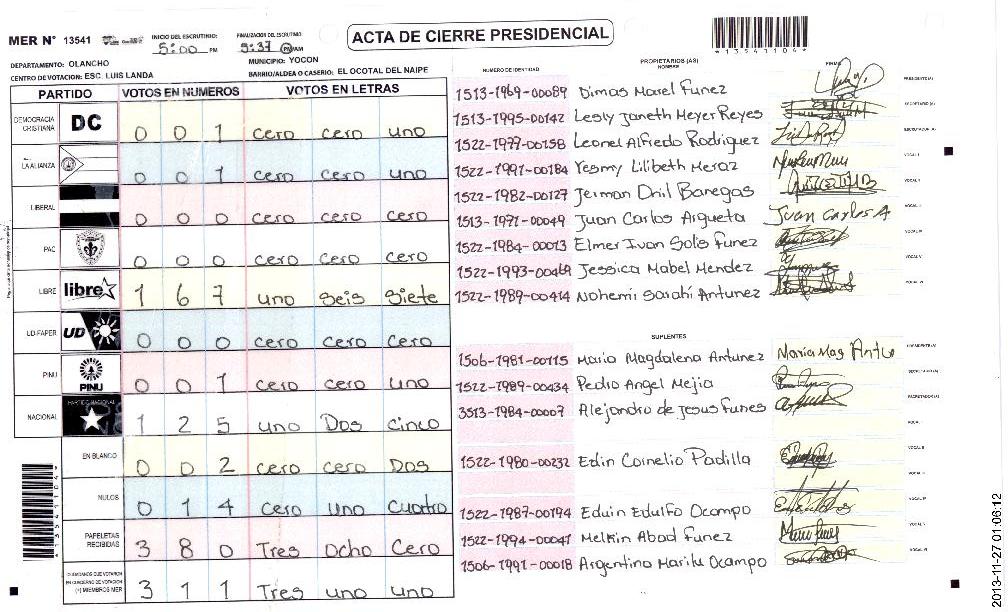 MER N° 13541
INICIO DEL ESCRUTINIO: 5:00 PM
FINALIZACIÓN DEL ESCRUTINIO 9:37 PM/AM
ACTA DE CIERRE PRESIDENCIAL
*13541104*
DEPARTAMENTO: OLANCHO
MUNICIPIO: YOCON
CENTRO DE VOTACION: ESC. LUIS LANDA
BARRIO/ALDEA O CASERIO: EL OCOTAL DEL NAIPE
PARTIDO VOTOS EN NUMEROS VOTOS EN LETRAS
DEMOCRACIA CRISTIANA DC 0 0 1 cero cero uno
LA ALIANZA 0 0 1 cero cero uno
LIBERAL 0 0 0 cero cero cero
PAC 0 0 0 cero cero cero
LIBRE libre 1 6 7 uno seis siete
UD-FAPER UD 0 0 0 cero cero cero
PINU PINU 0 0 1 cero cero uno
NACIONAL PARTIDO NACIONAL 1 2 5 uno Dos cinco
EN BLANCO 0 0 2 cero cero Dos
NULOS 0 1 4 cero uno cuatro
PAPELETAS RECIBIDAS 3 8 0 Tres ocho cero
CIUDADANOS QUE VOTARON EN CUADERNO DE VOTACION (+) MIEMBROS MER 3 1 1 Tres uno uno
PROPIETARIOS (AS)
NUMERO DE IDENTIDAD NOMBRE FIRMA
1513-1969-00089 Dimas Marel Funez PRESIDENTE(A)
1513-1995-00142 Lesly Janeth Meyer Reyes SECRETARIO (A)
1522-1977-00158 Leonel Alfredo Rodriguez ESCRUTADOR (A)
1522-1991-00184 Yesmy Lilibeth Meraz VOCAL I
1522-1982-00127 Jerman Dhil Banegas VOCAL II
1513-1971-00049 Juan Carlos Argueta Juan Carlos A. VOCAL III
1522-1984-00013 Elmer Ivan Solis Funez VOCAL IV
1522-1993-00469 Jessica Mabel Mendez VOCAL V
1522-1989-00414 Nohemi Sarahi Antunez VOCAL VI
SUPLENTES
1506-1981-00115 Maria Magdalena Antunez Maria Mag Antu PRESIDENTE(A)
1522-1989-00434 Pedro Angel Mejia SECRETARIO(A)
3513-1984-00007 Alejandro de Jesus Funes ESCRUTADOR(A)
VOCAL I
1522-1980-00232 Edin Cornelio Padilla VOCAL II
VOCAL III
1522-1987-00194 Eduin Edulfo Ocampo VOCAL IV
1522-1994-00041 Melkin Abad Funez VOCAL V
1506-1991-00018 Argentina Marila Ocampo VOCAL VI
*13541104*
2013-11-27 01:06:12